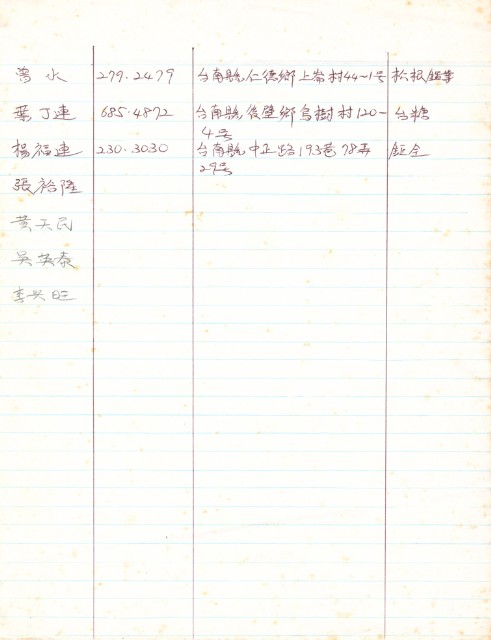 曾水 279.2479 台南縣仁德鄉上崙村44～1号 松根鋸業
葉丁連 685.4872 台南縣後壁鄉烏樹村120-
4号
楊福連 230.3030 台南縣中正路193巷78弄 鉅全
29号
張裕隆
黃天民
吳英泰
李興旺